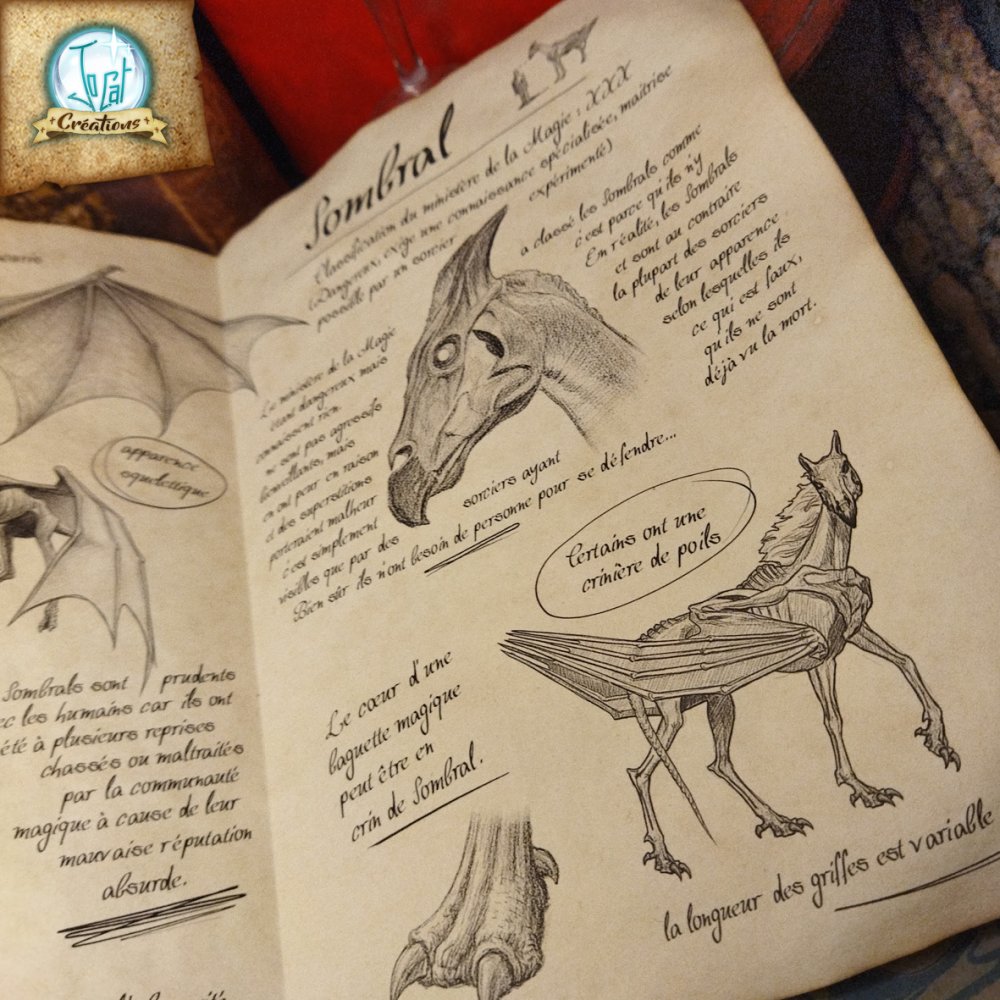 JoCat
Créations
Sombral
Classification du ministère de la Magie : XXX
(Dangereux, exige une connaissance spécialisée, maîtrise
possible par un sorcier expérimenté)
Le ministère de la Magie a classé les Sombrals comme
étant dangereux mais c'est parce qu'ils n'y
connaissent rien. En réalité, les Sombrals
ne sont pas agressifs et sont au contraire
bienveillants, mais la plupart des sorciers
en ont peur en raison de leur apparence
et des superstitions selon lesquelles ils
porteraient malheur ce qui est faux,
c'est simplement qu'ils ne sont
visibles que par des sorciers ayant déjà vu la mort.
Bien sûr ils n'ont besoin de personne pour se défendre...
apparence
squelettique
Certains ont une
crinière de poils
Sombrals sont prudents
les humains car ils ont
été à plusieurs reprises
chassés ou maltraités
par la communauté
magique à cause de leur
mauvaise réputation
absurde.
Le cœur d'une
baguette magique
peut être en
crin de Sombral.
la longueur des griffes est variable